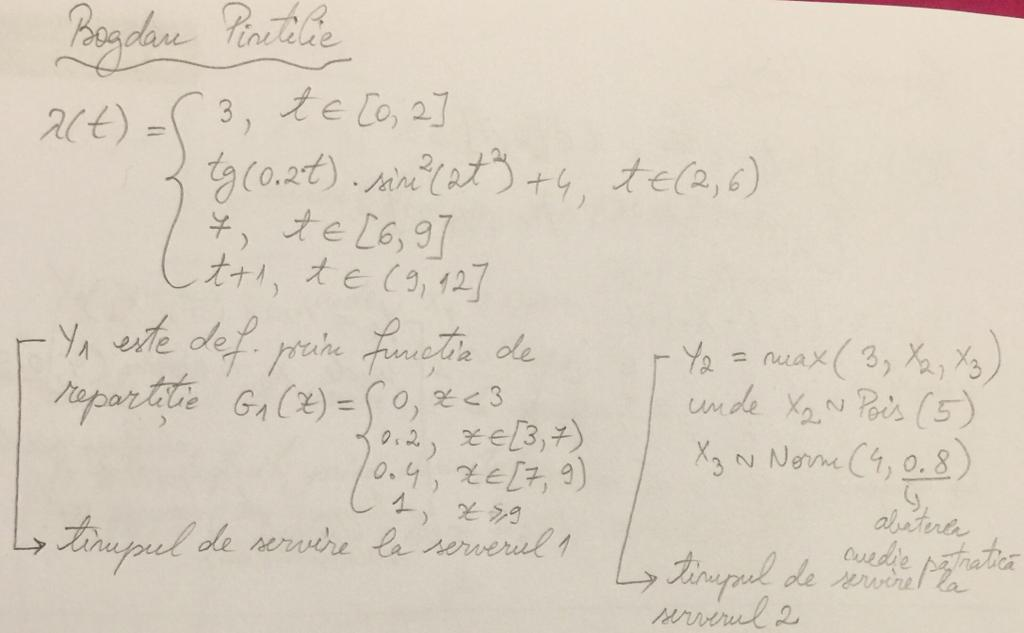 Bogdan Pintilie
λ(t) = { 3, t ∈ [0, 2]
tg(0.2t) · sin²(2t²) + 4, t ∈ (2, 6)
7, t ∈ [6, 9]
t+1, t ∈ (9, 12]
Y₁ este def. prin funcția de
repartiție G₁(x) = { 0, x < 3
0.2, x ∈ [3, 7)
0.4, x ∈ [7, 9)
1, x ≥ 9
→ timpul de servire la serverul 1
Y₂ = max(3, X₂, X₃)
unde X₂ ~ Pois(5)
X₃ ~ Norm(4, 0.8)
↳ abaterea
medie pătratică
→ timpul de servire la
serverul 2